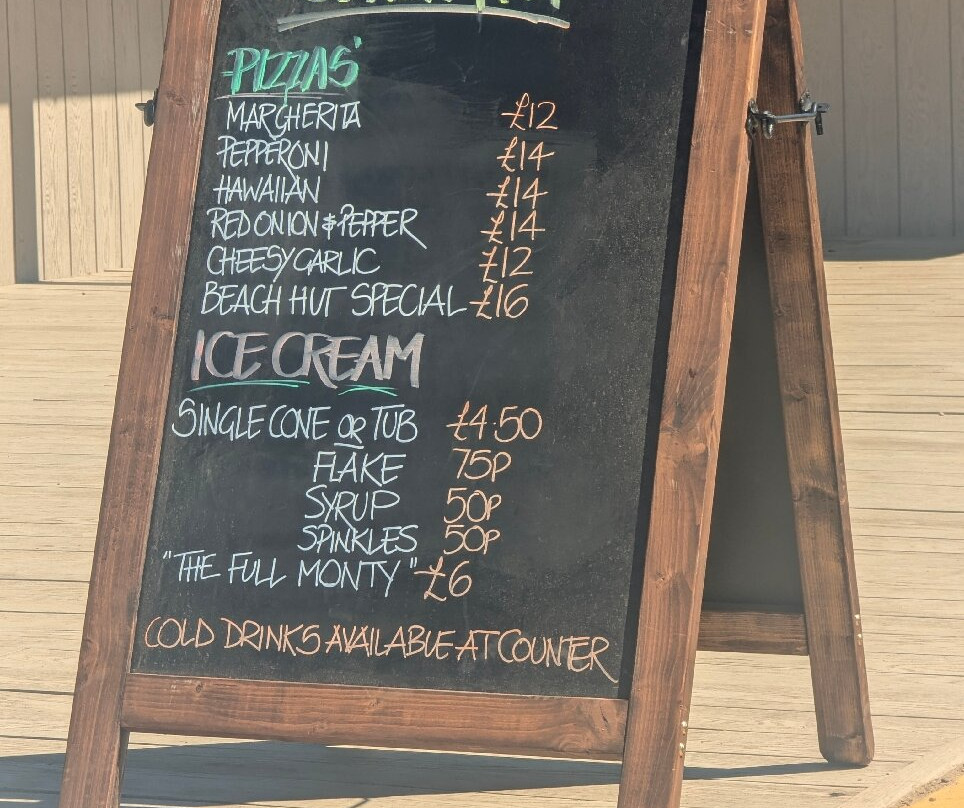 PIZZAS'
MARGHERITA £12
PEPPERONI £14
HAWAIIAN £14
RED ONION & PEPPER £14
CHEESY GARLIC £12
BEACH HUT SPECIAL £16
ICE CREAM
SINGLE CONE OR TUB £4.50
FLAKE 75P
SYRUP 50P
SPINKLES 50P
"THE FULL MONTY" £6
COLD DRINKS AVAILABLE AT COUNTER